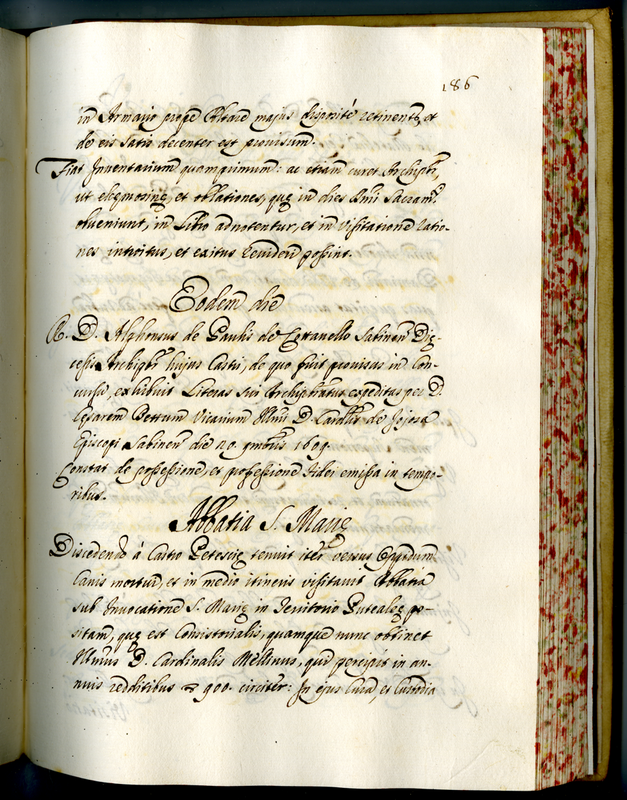 186
in Armario prope Altare majus disposité retinentr, et
de eis satis decenter est provisum.
Fiat Inventarium quamprimum: ac etiam curet Archipbr,
ut eleemosinę, et oblationes, quę in dies Smi Sacramti
obveniunt, in Libro adnotentur, et in Visitatione ratio-
nes introitus, et exitus revideri possint.
Eodem die
R. D. Alphonsus de Paulis de Cottanello Sabinen Dię-
cesis Archipbr hujus Castri, de quo fuit provisus in Con-
cursu, exhibuit Literas sui Archipbratus expeditas per D.
Cęsarem Vicarium Illmi D. Cardlis de
Episcopi Sabinen die 20. 1609.
Constat de possessione, et professione Fidei emissa in tempo-
ribus.
Abbatia S. Marię
Discedendo à Castro Petescię tenuit iter versus Oppidum
Canis mortui, et in medio itineris visitavit Abbatia
sub Invocatione S. Marię in Territorio Putealeę po-
sitam, quę est Consistorialis, quamque nunc obtinet
Illmus D. Cardinalis Mellinus, qui percipit in an-
nuis redditibus 900. circiter: In ejus Cura, et Custodia